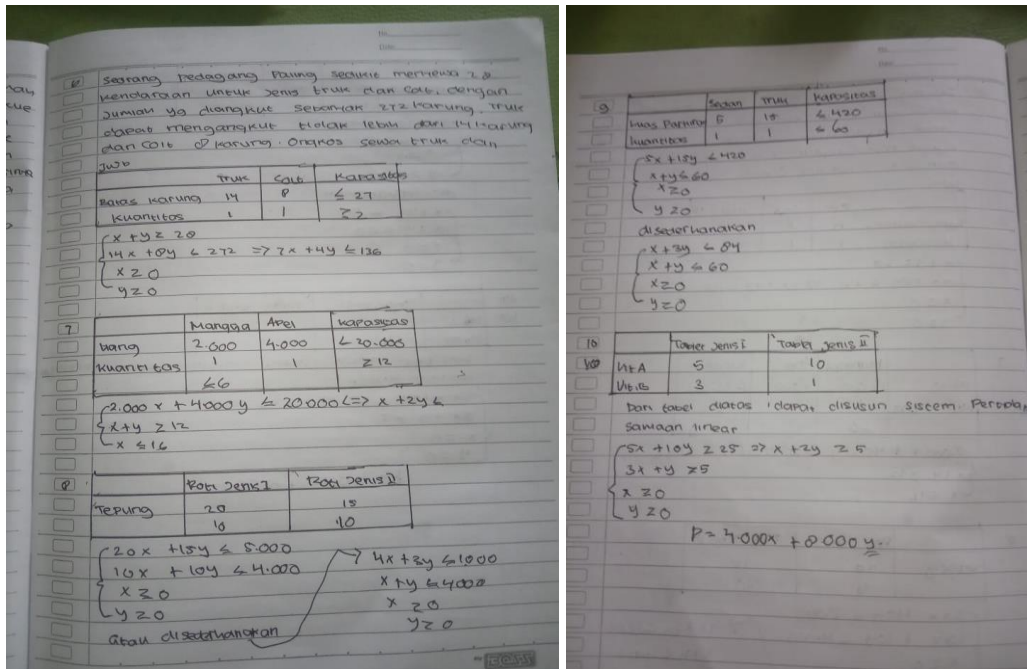 6 Seorang pedagang paling sedikit menyewa 28
kendaraan untuk jenis truk dan colt, dengan
jumlah yg diangkut sebanyak 272 karung. Truk
dapat mengangkut tidak lebih dari 14 karung
dan colt 8 karung. Ongkos sewa truk dan
Jwb
Truk Colt Kapasitas
Batas karung 14 8 ≤ 27
Kuantitas 1 1 ≥ 2
x + y ≥ 28
14x + 8y ≤ 272 => 7x + 4y ≤ 136
x ≥ 0
y ≥ 0
7 Mangga Apel Kapasitas
Uang 2.000 4.000 ≤ 20.000
Kuantitas 1 1 ≥ 12
≤ 6
2.000 x + 4000 y ≤ 20.000 <=> x + 2y ≤
x + y ≥ 12
x ≤ 16
8 Roti Jenis I Roti Jenis II
Tepung 20 15
10 10
20x + 15y ≤ 5.000
10x + 10y ≤ 4.000
x ≥ 0
y ≥ 0
atau disederhanakan
4x + 3y ≤ 1000
x + y ≤ 4000
x ≥ 0
y ≥ 0
9 Sedan Truk Kapasitas
Luas Parkiran 5 15 ≤ 420
Kuantitas 1 1 ≤ 60
5x + 15y ≤ 420
x + y ≤ 60
x ≥ 0
y ≥ 0
disederhanakan
x + 3y ≤ 84
x + y ≤ 60
x ≥ 0
y ≥ 0
10 Tablet Jenis I Tablet Jenis II
Vit A 5 10
Vit B 3 1
Dari tabel diatas dapat disusun sistem
samaan linear
5x + 10y ≥ 25 => x + 2y ≥ 5
3x + y ≥ 5
x ≥ 0
y ≥ 0
P = 4.000x + 8.000 y.